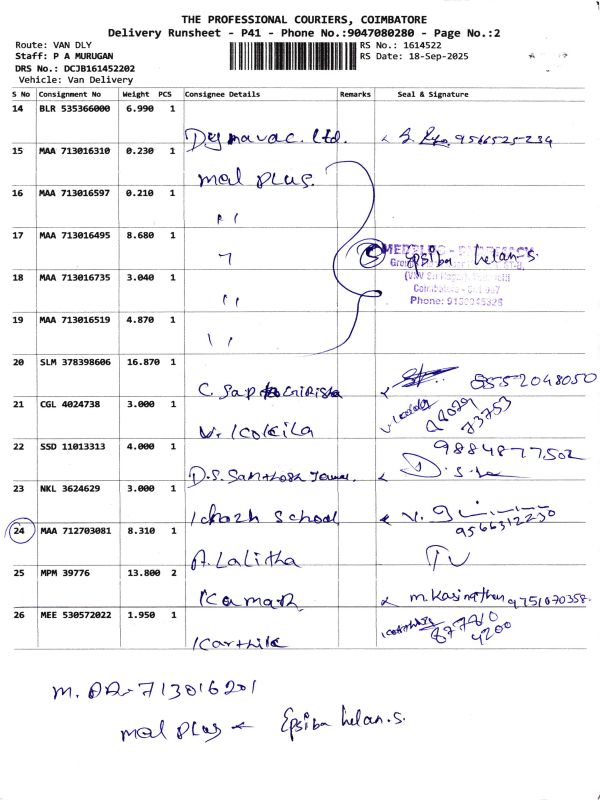 THE PROFESSIONAL COURIERS, COIMBATORE
Delivery Runsheet - P41 - Phone No.:9047080280 - Page No.:2
Route: VAN DLY
RS No.: 1614522
Staff: P A MURUGAN
RS Date: 18-Sep-2025
DRS No.: DCJB161452202
Vehicle: Van Delivery
S No Consignment No Weight PCS Consignee Details Remarks Seal & Signature
14 BLR 535366000 6.990 1
Ltd. 9566525234
15 MAA 713016310 0.230 1
med plus.
16 MAA 713016597 0.210 1
''
17 MAA 713016495 8.680 1
Epsiba helan.s.
18 MAA 713016735 3.040 1
''
Phone:
19 MAA 713016519 4.870 1
''
20 SLM 378398606 16.870 1
C. 85552048050
21 CGL 4024738 3.000 1
V. Kokila 98079 73753
22 SSD 11013313 4.000 1
9884877502
D.S. Santhosh
23 NKL 3624629 3.000 1
school V.
9566312230
24 MAA 712703081 8.310 1
A. Lalitha
25 MPM 39776 13.800 2
Kaman m. Kasinathan 9751070358
26 MEE 530572022 1.950 1
Karthik 877810 4200
713016201
med plus Epsiba helan.s.